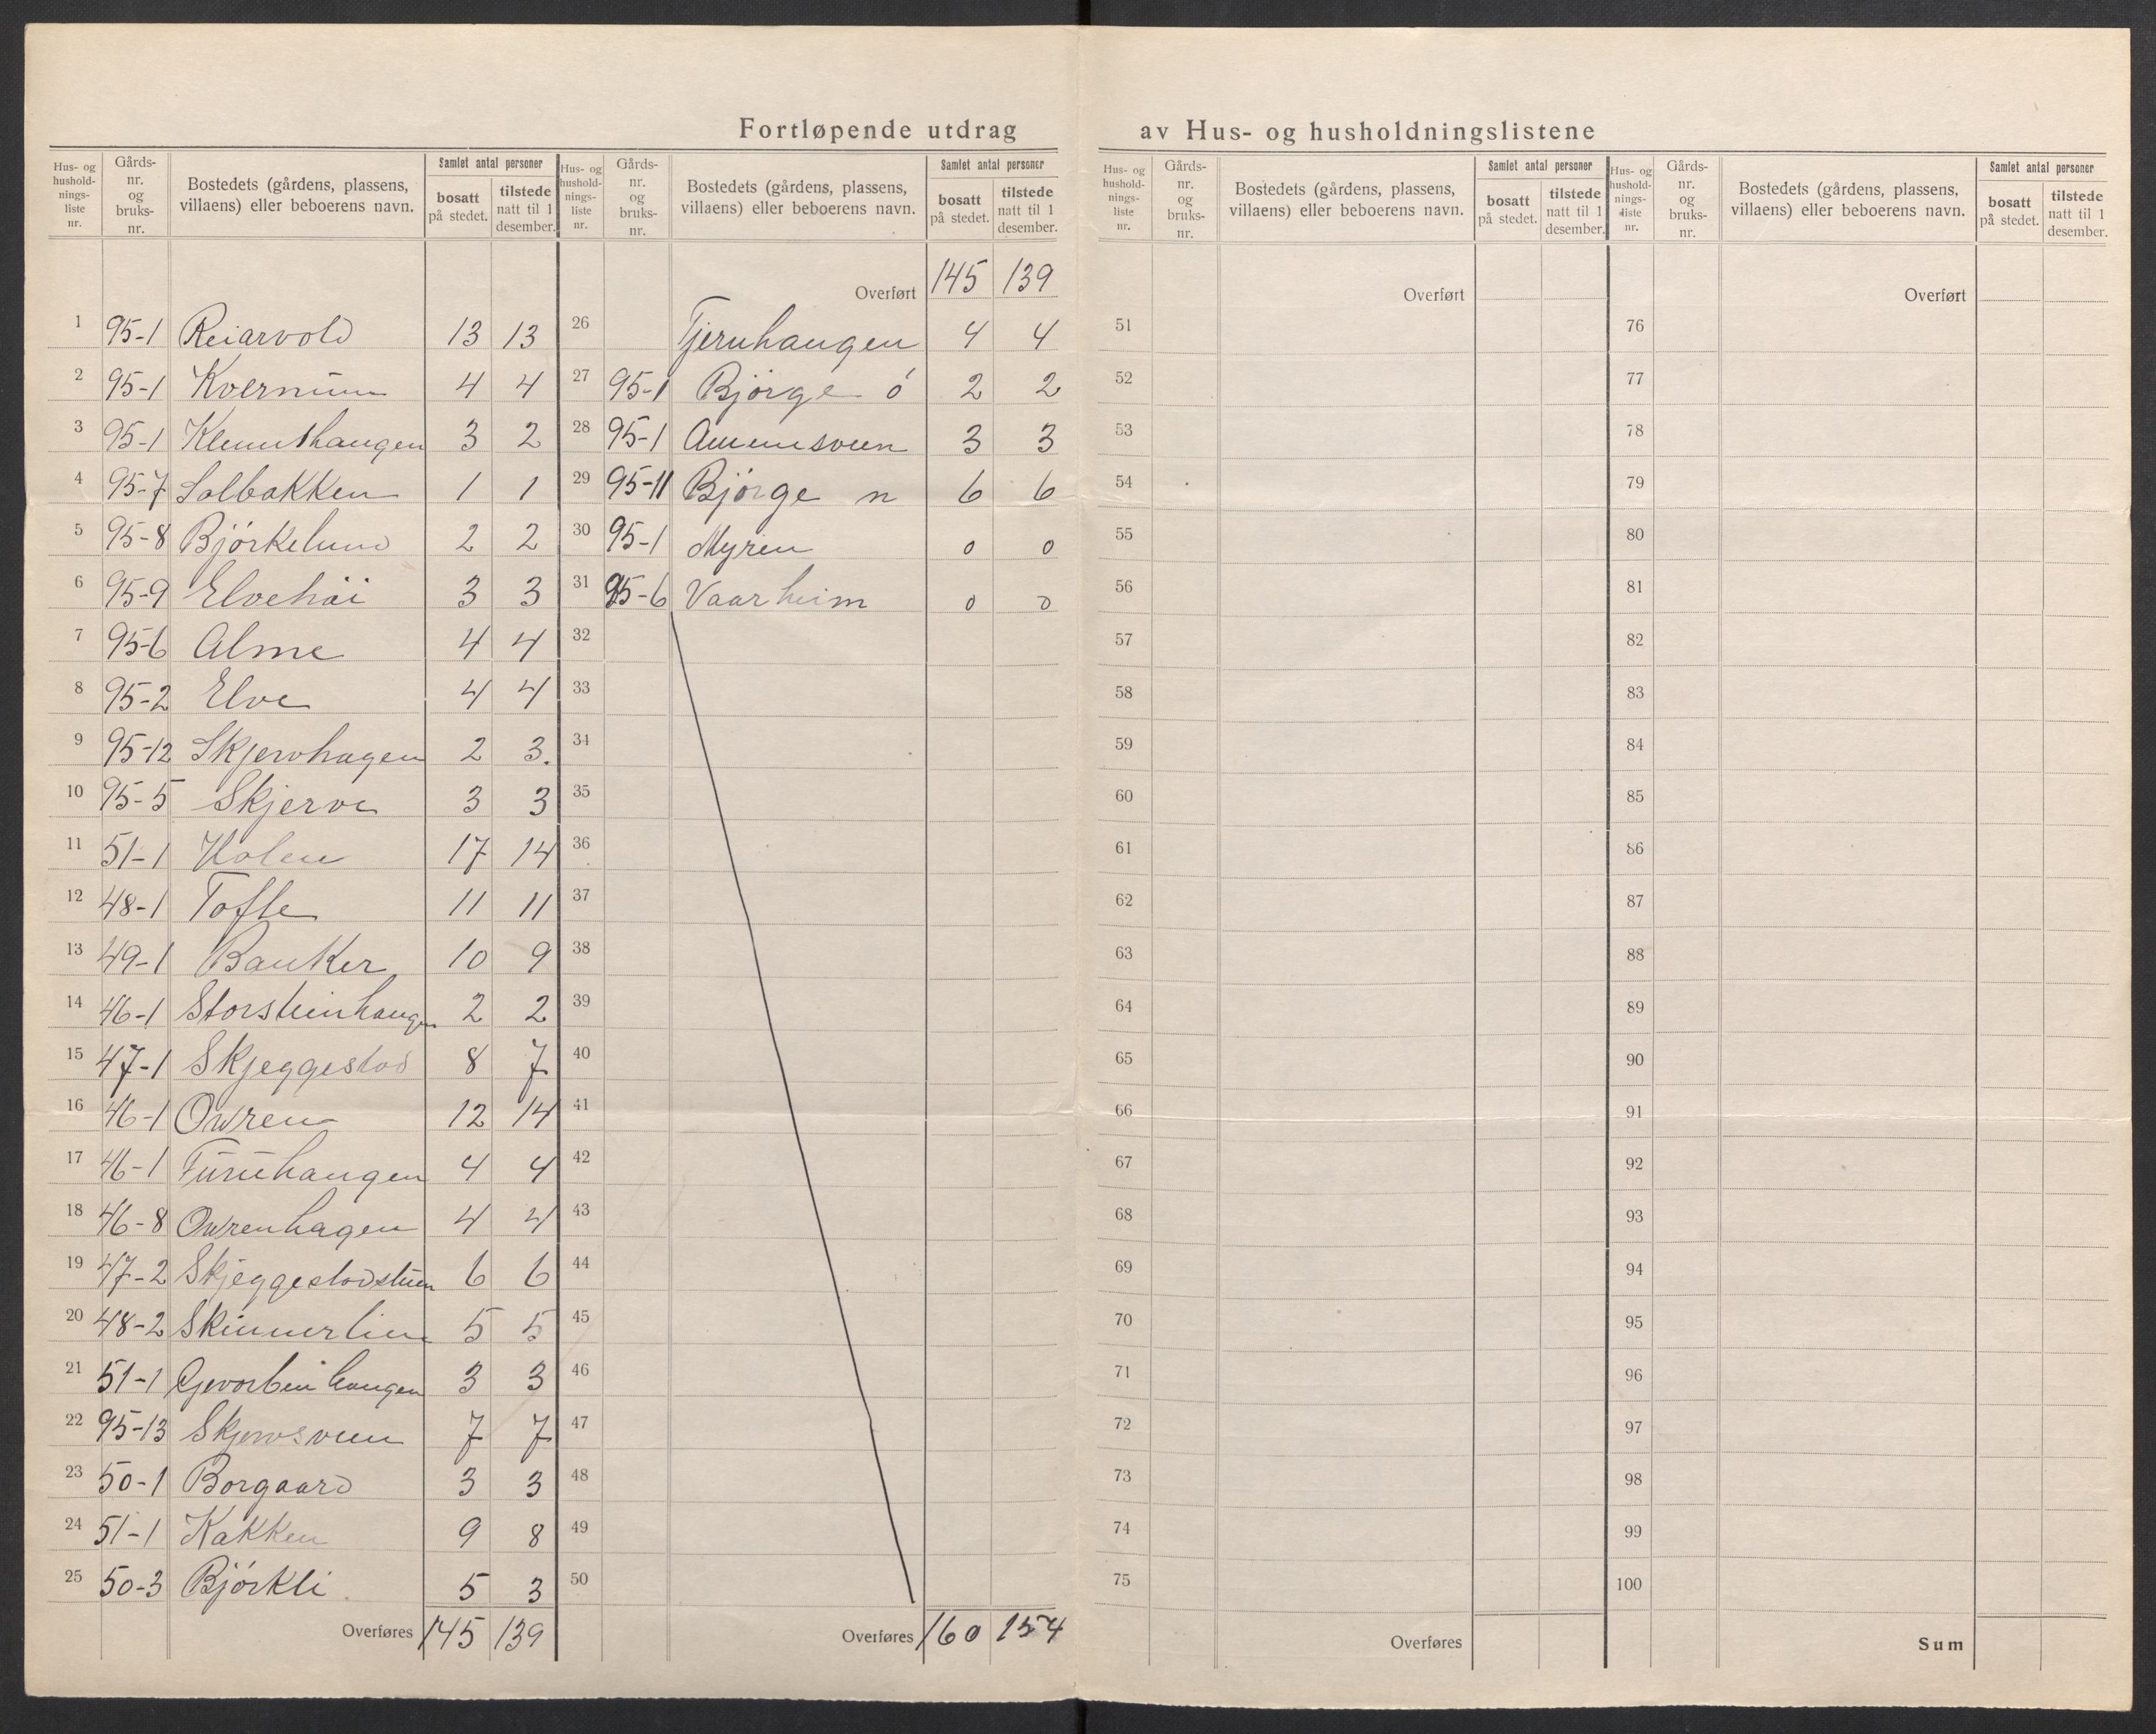 Fortløpende utdrag av Hus- og husholdningslistene
Hus- og hushold-nings-liste nr. | Gårds-nr. og bruks-nr. | Bostedets (gårdens, plassens, villaens) eller beboerens navn. | Samlet antal personer | bosatt på stedet. | tilstede natt til 1 desember.
1 95-1 Reiarvold 13 13
2 95-1 Kvernum 4 4
3 95-1 Klemmshaugen 3 2
4 95-7 Solbakken 1 1
5 95-8 Bjørkelund 2 2
6 95-9 Elvehøi 3 3
7 95-6 Alme 4 4
8 95-2 Elve 4 4
9 95-12 Skjervhagen 2 3.
10 95-5 Skjerve 3 3
11 51-1 Holen 17 14
12 48-1 Tofte 11 11
13 49-1 Bauker 10 9
14 46-1 Storsteinhaugen 2 2
15 47-1 Skjeggestad 8 7
16 46-1 Owren 12 14
17 46-1 Furuhaugen 4 4
18 46-8 Owrenhagen 4 4
19 47-2 Skjeggestadstuen 6 6
20 48-2 Skinnerlien 5 5
21 51-1 3 3
22 95-13 Skjervsveen 7 7
23 50-1 Borgaard 3 3
24 51-1 Kakken 9 8
25 50-3 Bjørkli 5 3
Overføres 145 139
Hus- og hushold-nings-liste nr. | Gårds-nr. og bruks-nr. | Bostedets (gårdens, plassens, villaens) eller beboerens navn. | Samlet antal personer | bosatt på stedet. | tilstede natt til 1 desember.
Overført 145 139
26 Tjernhaugen 4 4
27 95-1 Bjørge ø 2 2
28 95-1 3 3
29 95-11 Bjørge n 6 6
30 95-1 Myren 0 0
31 95-6 Vaarheim 0 0
32
33
34
35
36
37
38
39
40
41
42
43
44
45
46
47
48
49
50
Overføres 160 154
Hus- og hushold-nings-liste nr. | Gårds-nr. og bruks-nr. | Bostedets (gårdens, plassens, villaens) eller beboerens navn. | Samlet antal personer | bosatt på stedet. | tilstede natt til 1 desember.
Overført
51
52
53
54
55
56
57
58
59
60
61
62
63
64
65
66
67
68
69
70
71
72
73
74
75
Overføres
Hus- og hushold-nings-liste nr. | Gårds-nr. og bruks-nr. | Bostedets (gårdens, plassens, villaens) eller beboerens navn. | Samlet antal personer | bosatt på stedet. | tilstede natt til 1 desember.
Overført
76
77
78
79
80
81
82
83
84
85
86
87
88
89
90
91
92
93
94
95
96
97
98
99
100
Sum